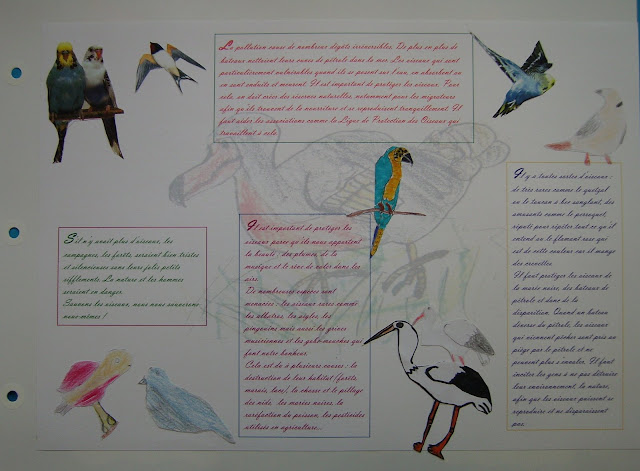 La pollution cause de nombreux dégâts irréversibles. De plus en plus de
bateaux nettoient leurs cuves de pétrole dans la mer. Les oiseaux qui sont
particulièrement vulnérables quand ils se posent sur l'eau, en absorbent ou
en sont enduits et meurent. Il est important de protéger les oiseaux. Pour
cela, on doit créer des réserves naturelles, notamment pour les migrateurs
afin qu'ils trouvent de la nourriture et se reproduisent tranquillement. Il
faut aider les associations comme la Ligue de Protection des Oiseaux qui
travaillent à cela.
S'il n'y avait plus d'oiseaux, les
campagnes, les forêts seraient bien tristes
et silencieuses sans leurs jolis petits
sifflements. La nature et les hommes
seraient en danger.
Sauvons les oiseaux, nous nous sauverons
nous-mêmes !
Il est important de protéger les
oiseaux parce qu'ils nous apportent
la beauté : des plumes, de la
musique et le rêve de voler dans les
airs.
De nombreuses espèces sont
menacées : les oiseaux rares comme
les albatros, les aigles, les
pingouins mais aussi les grives
musiciennes et les gobe-mouches qui
font notre bonheur.
Cela est dû à plusieurs causes : la
destruction de leur habitat (forêts,
marais, lacs), la chasse et le pillage
des nids, les marées noires, la
raréfaction du poisson, les pesticides
utilisés en agriculture...
Il y a toutes sortes d'oiseaux :
de très rares comme le quetzal
ou le touraco bec sanglant, des
amusants comme le perroquet,
réputé pour répéter tout ce qu'il
entend ou le flamant rose qui
est de cette couleur car il mange
des crevettes.
Il faut protéger les oiseaux de
la marée noire, des bateaux
de pétrole et donc de la
disparition. Quand un bateau
déverse du pétrole, les oiseaux
qui viennent pêcher sont pris au
piège par le pétrole et ne
peuvent plus s'envoler. Il faut
inciter les gens à ne pas détruire
leur environnement, la nature,
afin que les oiseaux puissent se
reproduire et ne disparaissent
pas.